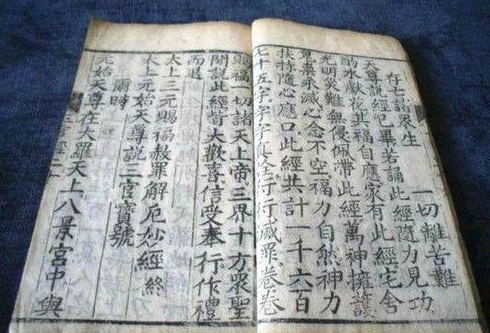 存亡諸衆生　一切離苦難
天尊說經已畢若誦此經隨力見功
酌水獻花其福自應家有此經宅舍
光明災難無侵佩帶此經萬神擁護
業永滅心念不空福力自然神力
扶持隨心應口此經共計一千六百
七十五字字字真全行行滅罪卷卷
賜福一切諸天上帝三界十方衆聖
聞說此經皆大歡喜信受奉行作禮
而退
太上三元賜福赦罪解厄妙經終
太上元始天尊說三官寶號
爾時
元始天尊在大羅天上八景宮中與